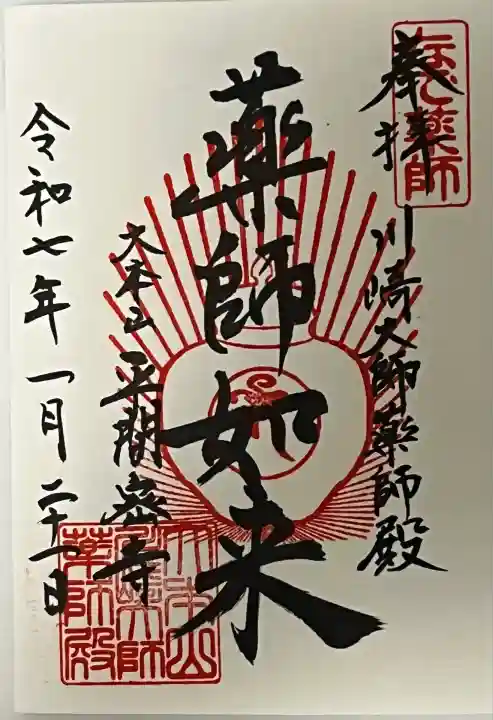 奉拝
なで薬師
川崎大師薬師殿
薬師如来
大本山 平間寺
令和七年一月二十一日
大本山
川崎大師
薬師殿